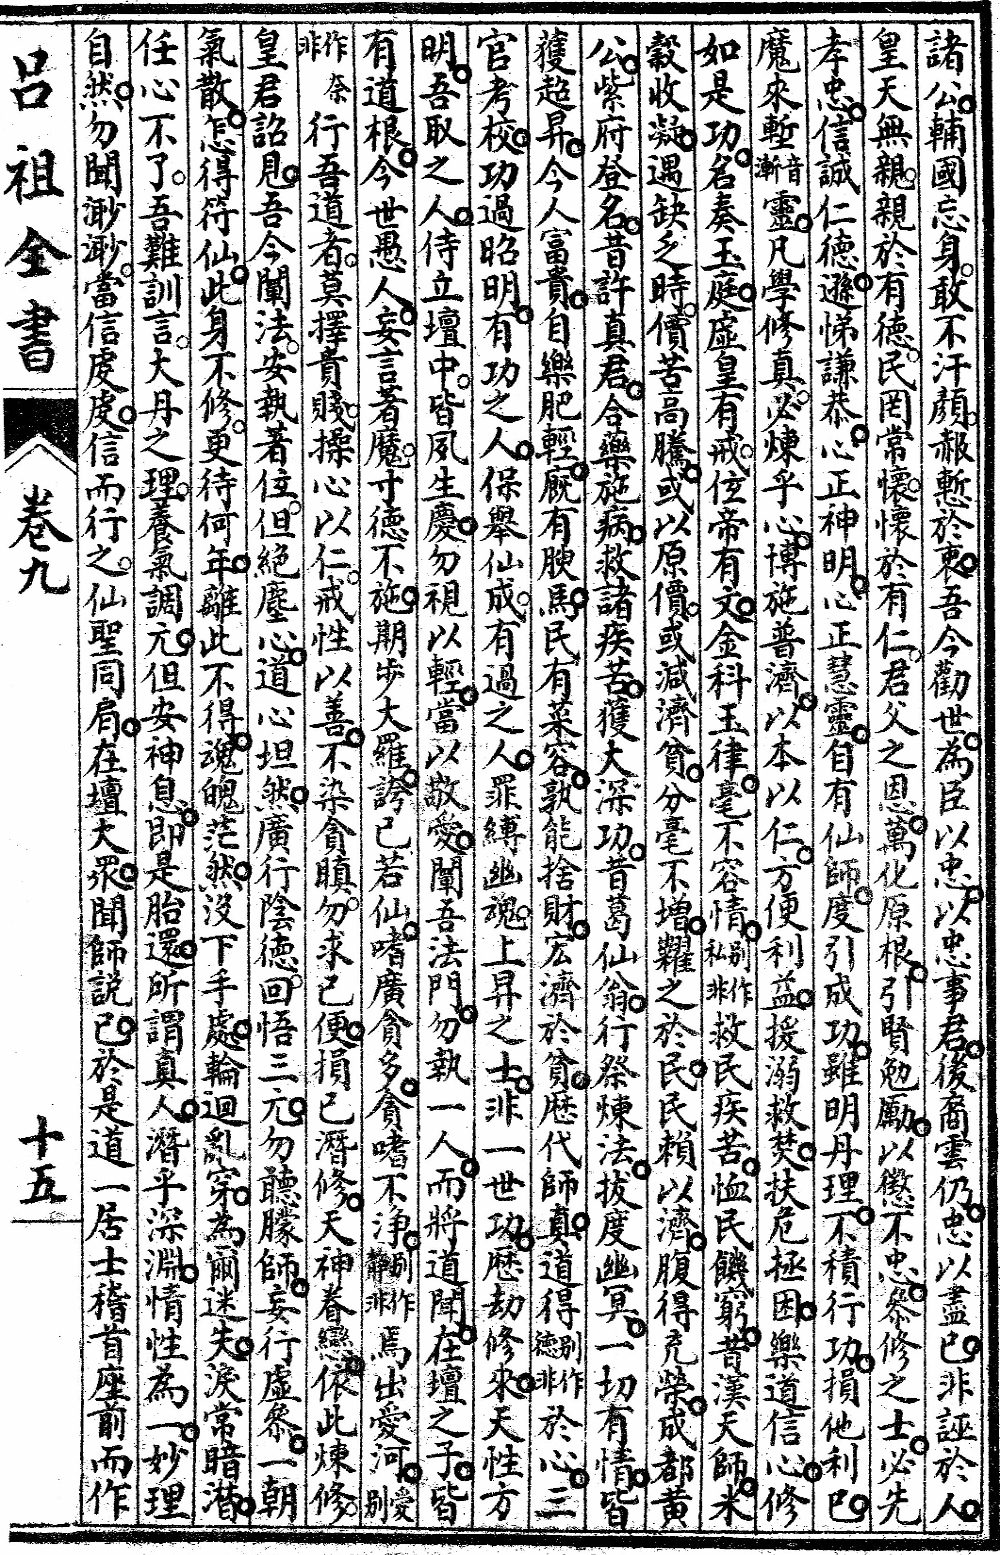 諸公輔國忘身敢不汗顏赧慙於衷吾今勸世為臣以忠以忠事君後裔雲仍忠以盡已非誣於人
皇天無親親於有德民罔常懷懷於有仁君父之恩萬化原根引賢勉勵以懲不忠叅修之士必先
孝忠信誠仁德遜悌謙恭心正神明心正慧靈自有仙師度引成功雖明丹理不積行功損他利巳
魔來塹音漸靈凡學修真必煉乎心博施普濟以本以仁方便利益援溺救焚扶危拯困樂道信心修
如是功名奏玉庭虛皇有戒位帝有文金科玉律毫不容情别作私非救民疾苦恤民饑窮昔漢天師米
穀收凝遇缺乏時價苦高騰或以原價或減濟貧分毫不增糶之於民民賴以濟腹得充榮成都黃
公紫府登名昔許真君合藥施病救諸疾苦獲大深功昔葛仙翁行祭煉法拔度幽冥一切有情皆
獲超昇今人富貴自樂肥輕廐有腴馬民有菜容孰能捨財宏濟於貧歷代師真道得别作德非於心三
官考校功過昭明有功之人保舉仙成有過之人罪縛幽魂上昇之士非一世功歷劫修來天性方
明吾取之人侍立壇中皆夙生慶勿視以輕當以敬愛闡吾法門勿執一人而將道聞在壇之子皆
有道根今世愚人妄言著魔寸德不施期步大羅誇己若仙嗜廣貪多貪嗜不淨别作靜非焉出愛河愛别
作奈非行吾道者莫擇貴賤操心以仁戒性以善不染貪瞋勿求已便損已潛修天神眷戀依此煉修
皇君詔見吾今闡法安執著位但絕塵心道心坦然廣行陰德回悟三元勿聽朦師妄行虛叅一朝
氣散怎得符仙此身不修更待何年離此不得魂魄茫然沒下手處輪迴亂穿為爾迷失淚常暗潸
任心不了吾難訓言大丹之理養氣調元但安神息即是胎還所謂真人潛乎深淵情性為一妙理
自然勿聞渺渺當信虔虔信而行之仙聖同肩在壇大眾聞師說已於是道一居士稽首座前而作
呂祖全書
卷九
十五